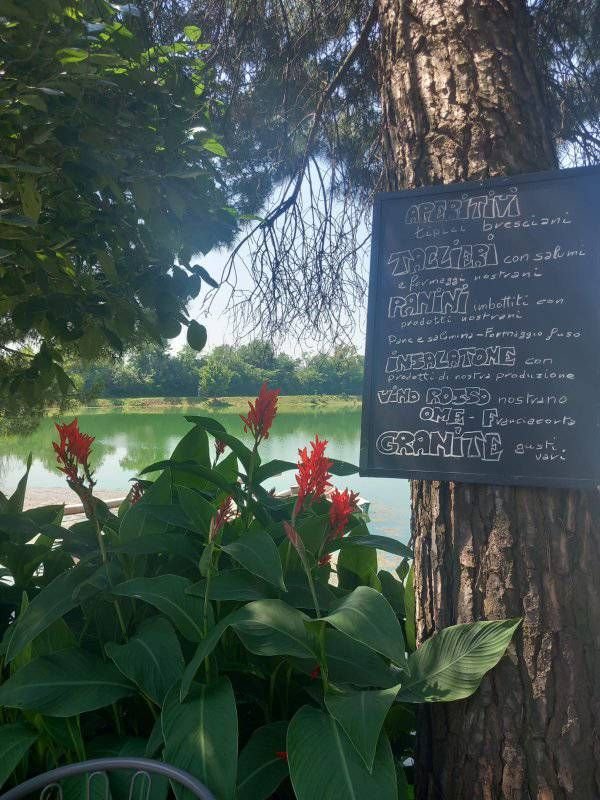 APERITIVI
tipici bresciani
TAGLIERI con salumi
e formaggi nostrani
PANINI imbottiti con
prodotti nostrani
Pane e salamina - Formaggio fuso
INSALATONE con
prodotti di nostra produzione
VINO ROSSO nostrano
OME - Franciacorta
GRANITE gusti
vari